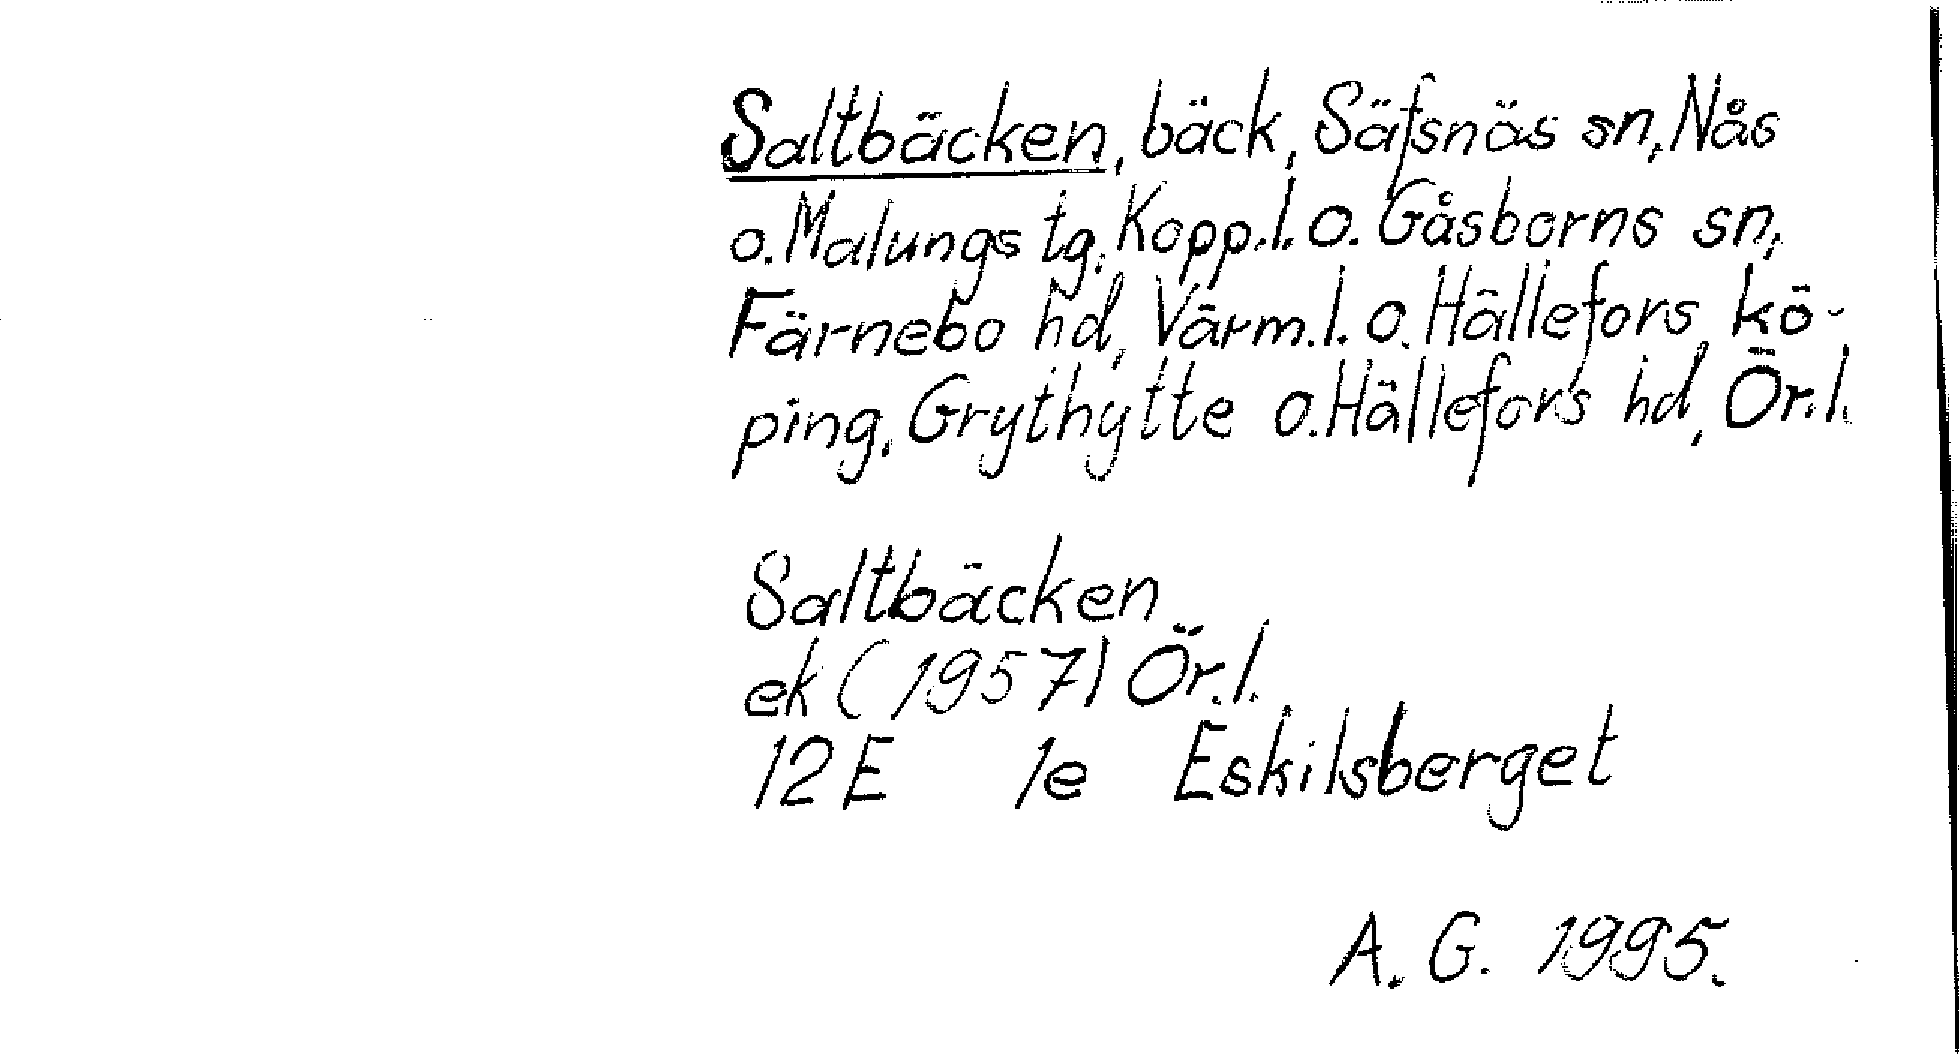 Saltbäcken, bäck, Säfsnäs sn, Nås
o. Malungs tg, Kopp.l. o. Gåsborns sn,
Färnebo hd, Värm.l. o. Hällefors kö-
ping, Grythytte o. Hällefors hd, Ör.l.
Saltbäcken
ek (1957) Ör.l.
12E 1e Eskilsberget
A. G. 1995.